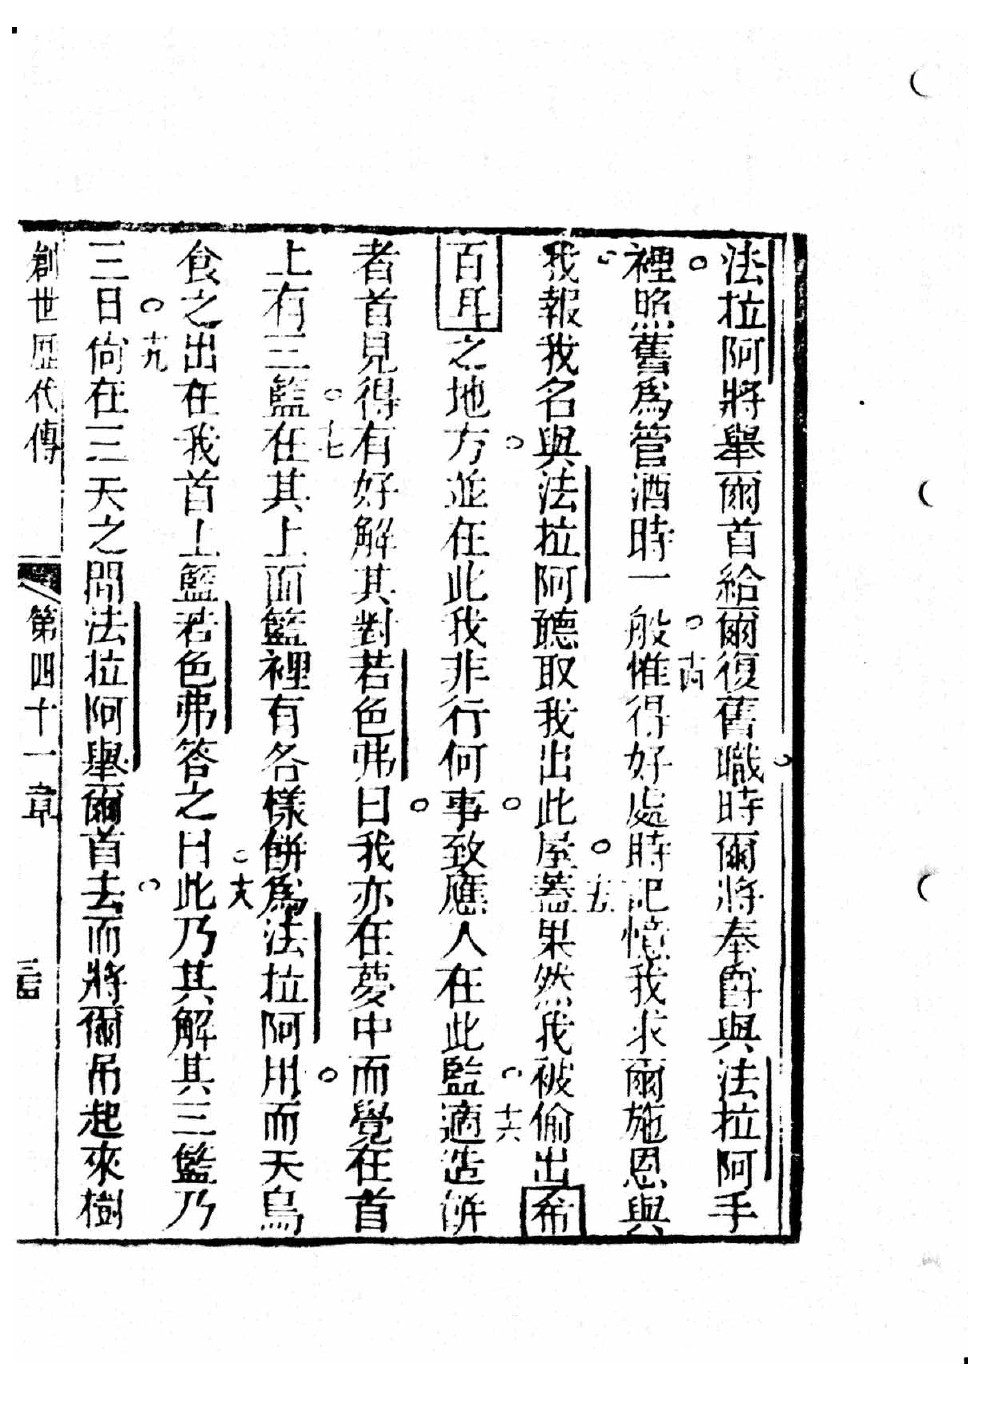 法拉阿將舉爾首給爾復舊職時爾將奉爵與法拉阿手
裡照舊為管酒時一般惟得好處時記憶我求爾施恩與
十四
我報我名與法拉阿聽取我出此屋蓋果然我被偷出希
十五
百耳之地方並在此我非行何事致應人在此監適造餅
十六
者首見得有好解其對若色弗曰我亦在夢中而覺在首
十七
上有三籃在其上而籃裡有各樣餅為法拉阿用而天鳥
食之出在我首上籃若色弗答之曰此乃其解其三籃乃
十八
三日尙在三天之間法拉阿舉爾首去而將爾吊起來樹
十九
創世歷代傳
第四十一章